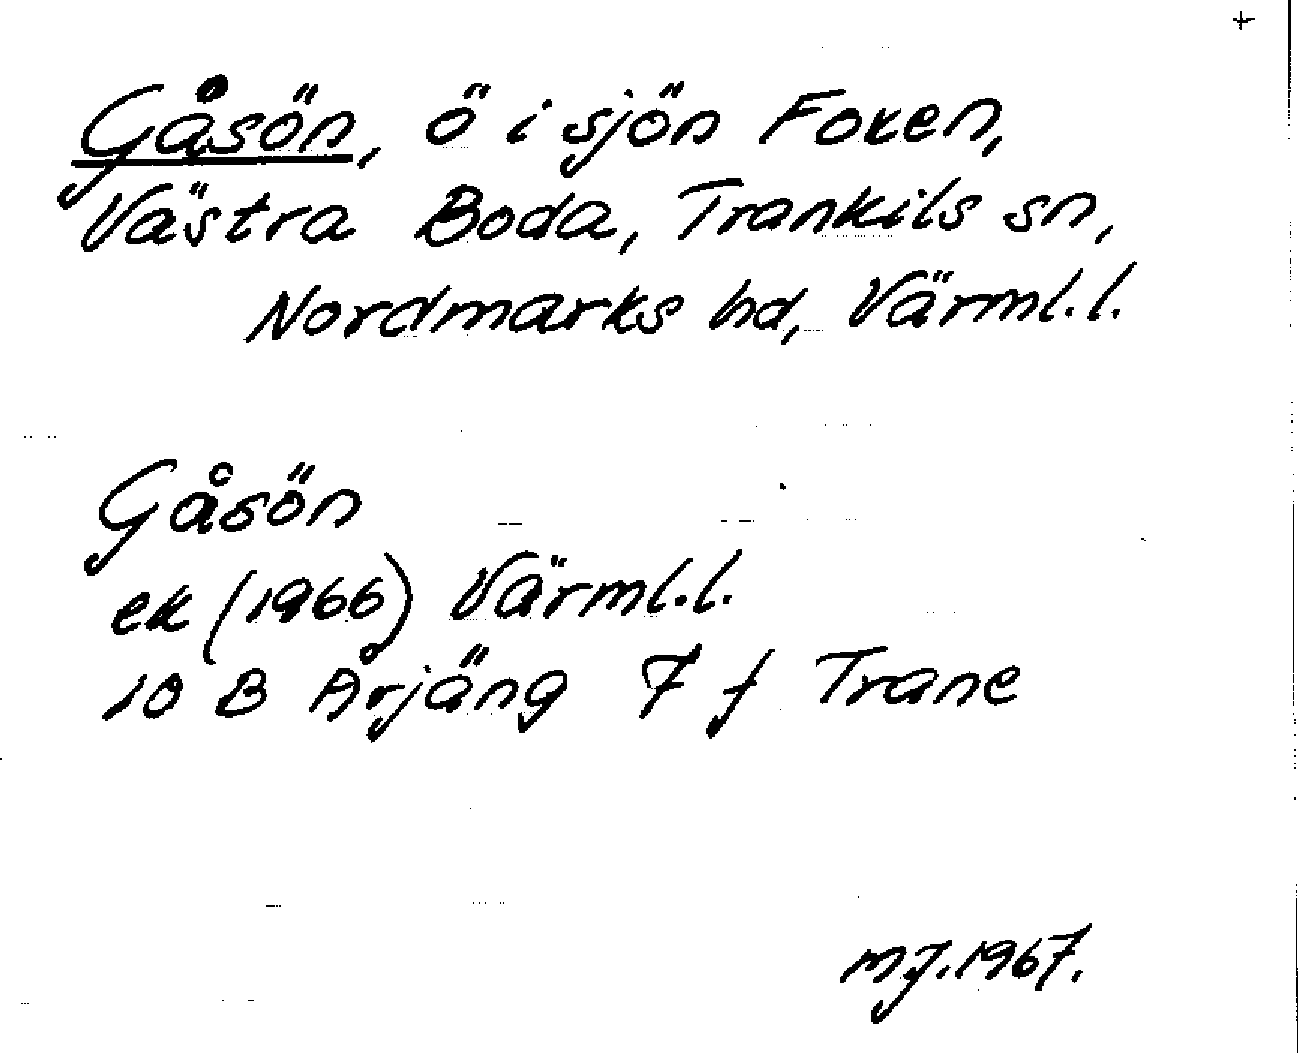 +
Gåsön, ö i sjön Foxen,
Västra Boda, Trankils sn,
Nordmarks hd, Värml.l.
Gåsön
ek (1966) Värml.l.
10 B Årjäng 7 f Trane
MJ.1967.